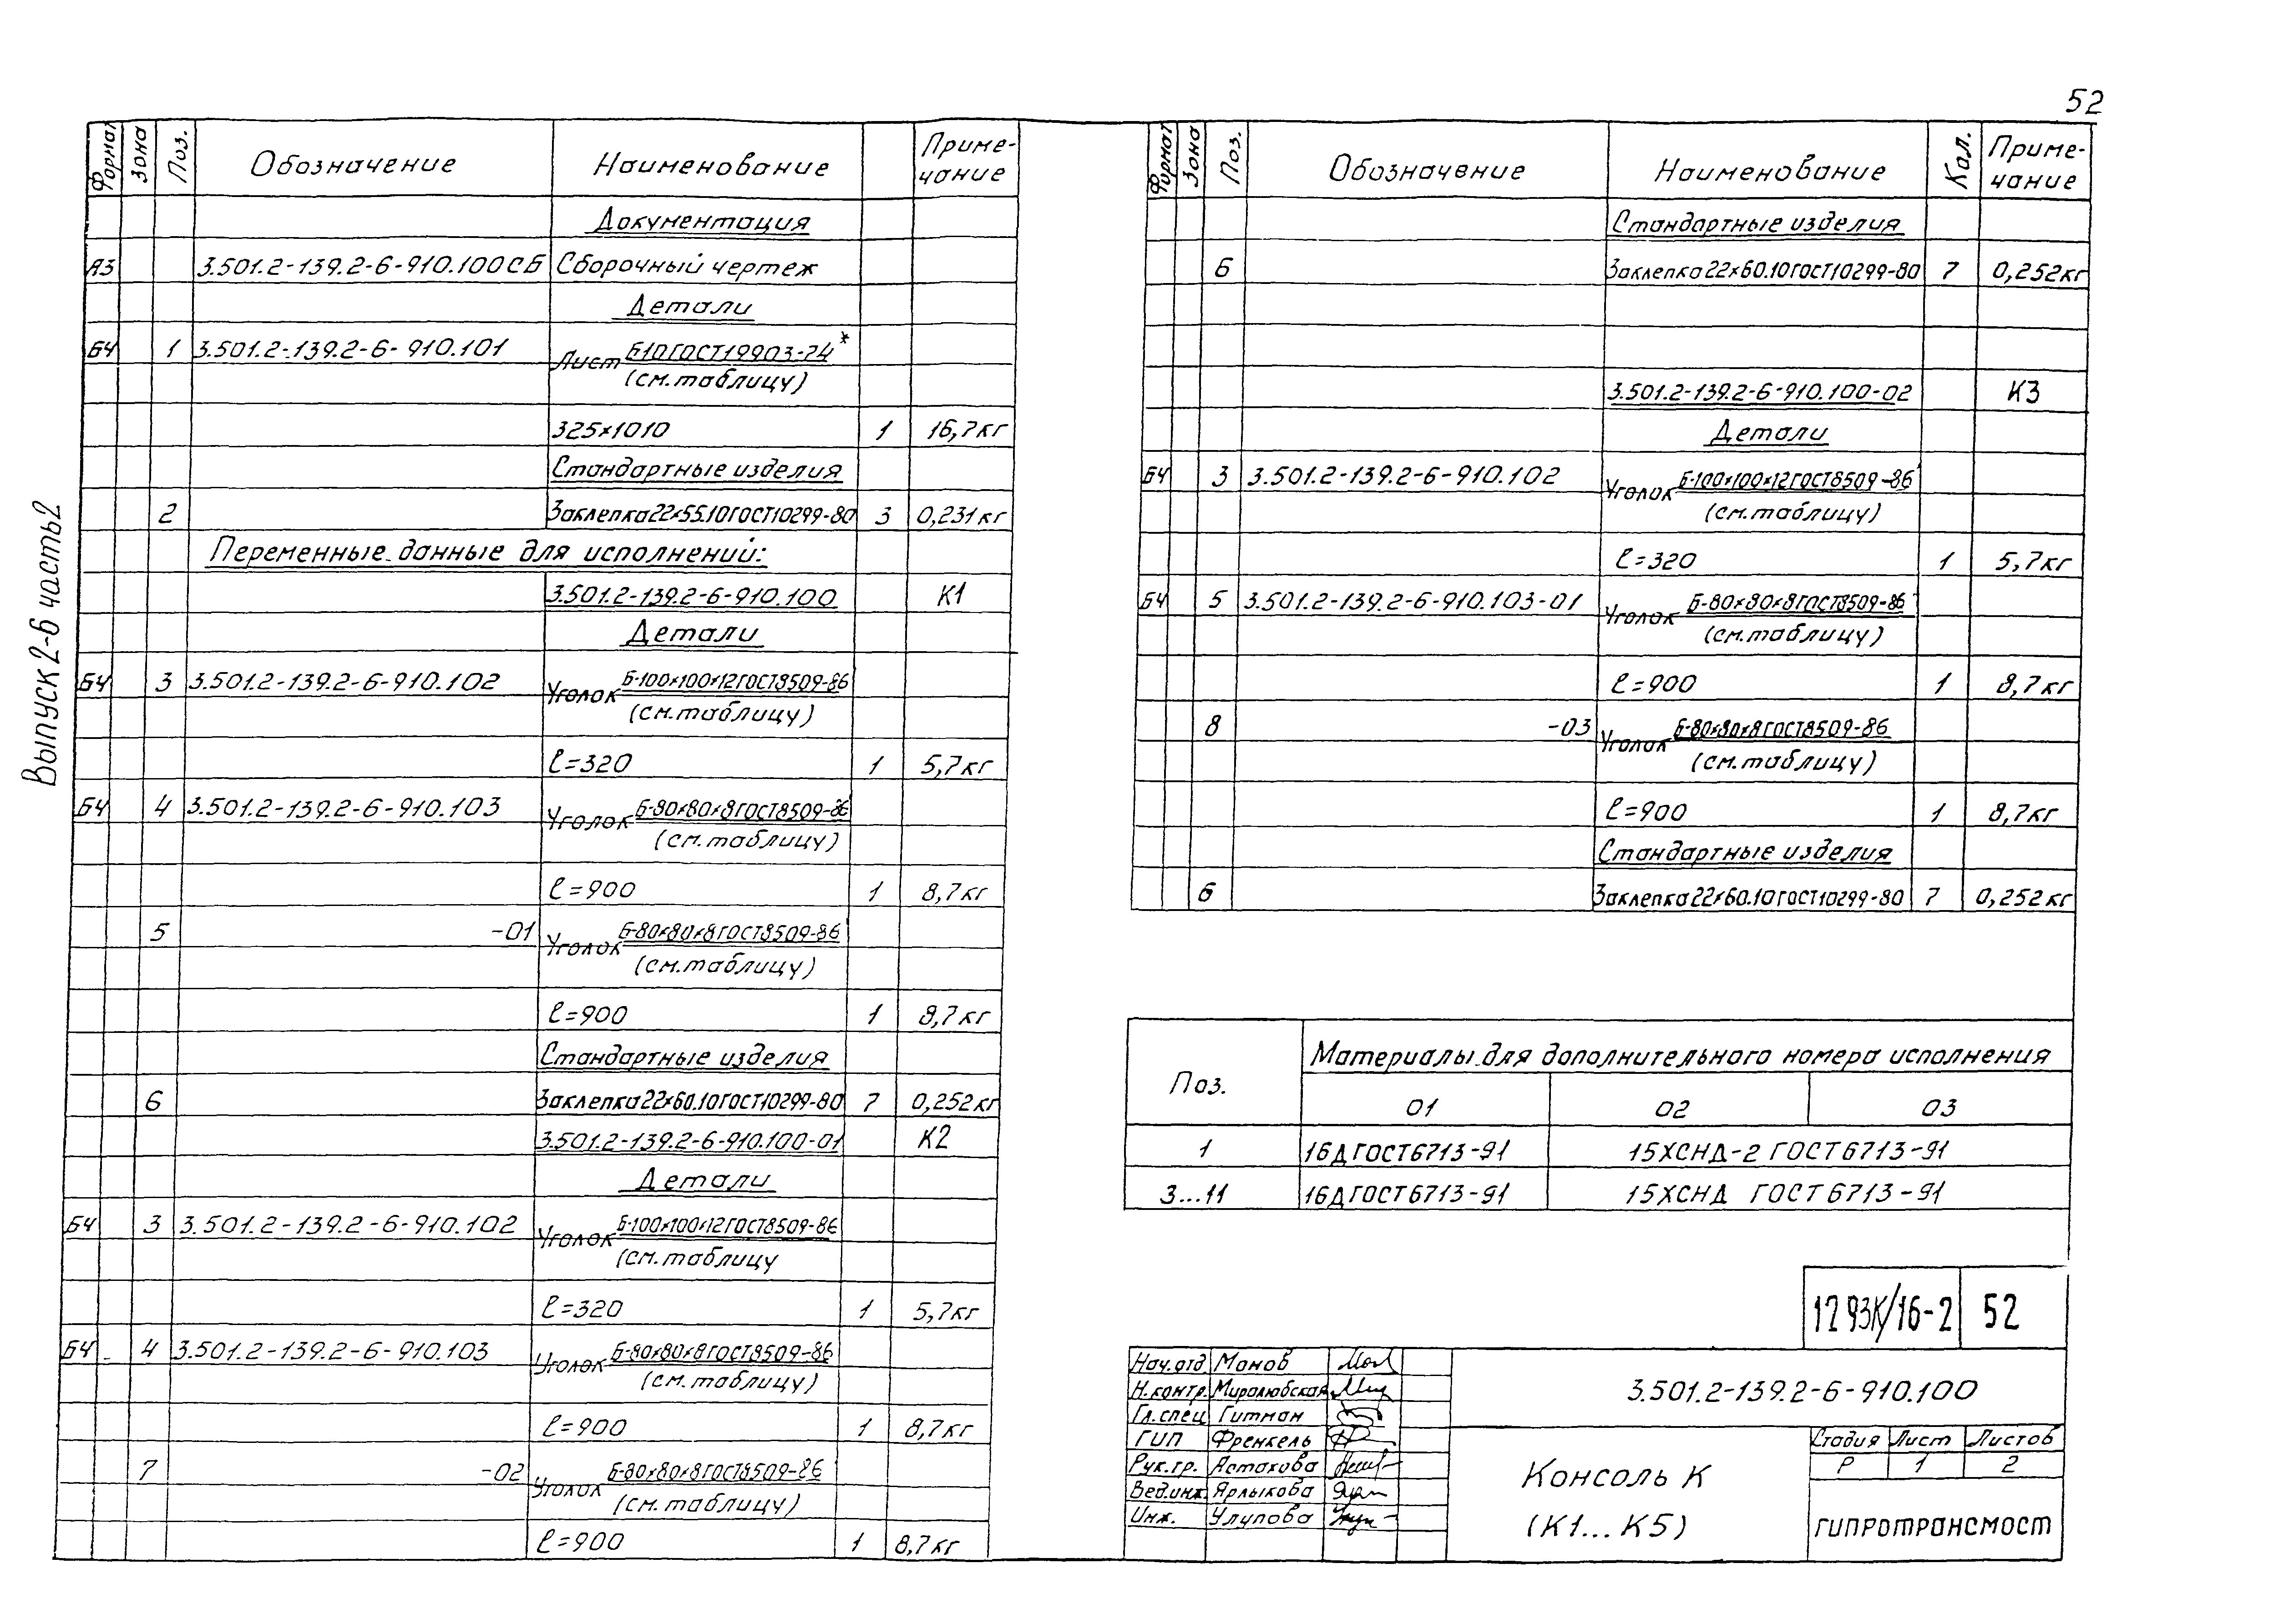 52
Выпуск 2-6 часть 2
Формат Зона Поз. Обозначение Наименование Приме-чание
Документация
А3 3.501.2-139.2-6-910.100СБ Сборочный чертеж
Детали
БЧ 1 3.501.2-139.2-6-910.101 Лист Б10 ГОСТ19903-74*
(см. таблицу)
325×1010 1 16,7кг
Стандартные изделия
2 Заклепка 22×55.10 ГОСТ10299-80 3 0,231кг
Переменные данные для исполнений:
3.501.2-139.2-6-910.100 К1
Детали
БЧ 3 3.501.2-139.2-6-910.102 Уголок Б-100×100×12 ГОСТ8509-86
(см. таблицу)
ℓ=320 1 5,7кг
БЧ 4 3.501.2-139.2-6-910.103 Уголок Б-80×80×8 ГОСТ8509-86
(см. таблицу)
ℓ=900 1 8,7кг
5 -01 Уголок Б-80×80×8 ГОСТ8509-86
(см. таблицу)
ℓ=900 1 8,7кг
Стандартные изделия
6 Заклепка 22×60.10 ГОСТ10299-80 7 0,252кг
3.501.2-139.2-6-910.100-01 К2
Детали
БЧ 3 3.501.2-139.2-6-910.102 Уголок Б-100×100×12 ГОСТ8509-86
(см. таблицу
ℓ=320 1 5,7кг
БЧ 4 3.501.2-139.2-6-910.103 Уголок Б-80×80×8 ГОСТ8509-86
(см. таблицу)
ℓ=900 1 8,7кг
7 -02 Уголок Б-80×80×8 ГОСТ8509-86
(см. таблицу)
ℓ=900 1 8,7кг
Формат Зона Поз. Обозначение Наименование Кол. Приме-чание
Стандартные изделия
6 Заклепка 22×60.10 ГОСТ10299-80 7 0,252кг
3.501.2-139.2-6-910.100-02 К3
Детали
БЧ 3 3.501.2-139.2-6-910.102 Уголок Б-100×100×12 ГОСТ8509-86
(см. таблицу)
ℓ=320 1 5,7кг
БЧ 5 3.501.2-139.2-6-910.103-01 Уголок Б-80×80×8 ГОСТ8509-86
(см. таблицу)
ℓ=900 1 8,7кг
8 -03 Уголок Б-80×80×8 ГОСТ8509-86
(см. таблицу)
ℓ=900 1 8,7кг
Стандартные изделия
6 Заклепка 22×60.10 ГОСТ10299-80 7 0,252кг
Поз. Материалы для дополнительного номера исполнения
01 02 03
1 16Д ГОСТ6713-91 15ХСНД-2 ГОСТ6713-91
3...11 16Д ГОСТ6713-91 15ХСНД ГОСТ6713-91
1293К/16-2 52
Нач.отд Монов
Н.контр. Миролюбская
Гл.спец Гитман
ГИП Френкель
Рук.гр. Астахова
Вед.инж. Ярлыкова
Инж. Улупова
3.501.2-139.2-6-910.100
Консоль К
(К1...К5)
Стадия Лист Листов
Р 1 2
ГИПРОТРАНСМОСТ